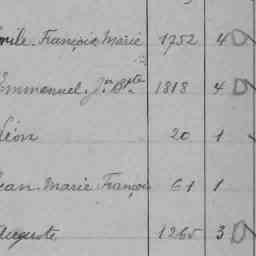 Emile François Marie 1752 4 D
Emmanuel Jn Bpte 1818 4 D
Léon 20 1
Jean Marie François 61 1
Auguste 1265 3 D